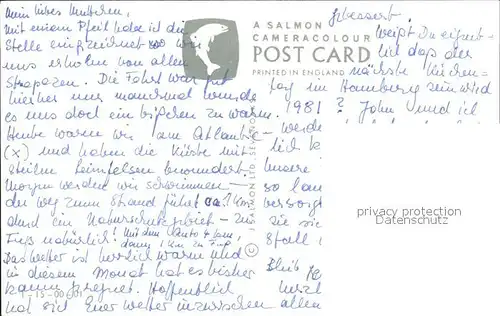 Mein liebes Muttchen,
mit einem Pfeil habe ich die
Stelle eingezeichnet wo wir
uns erholen von allen
Strapazen. Die Fahrt war gut
hierher nur manchmal wurde
es uns doch ein bißchen zu warm.
Heute waren wir am Atlantic
(x) und haben die Küste mit
steilen Steinfelsen bewundert.
Morgen werden wir schwimmen –
der Weg zum Strand führt ca. 1 km
durch ein Naturschutzgebiet – zu
Fuß natürlich! (mit dem Auto
dann 1 km zu Fuß
Das Wetter ist herrlich warm und
in diesem Monat hat es bisher
kaum geregnet. Hoffentlich
hat sich Euer Wetter inzwischen allen
A SALMON
CAMERACOLOUR
POST CARD
PRINTED IN ENGLAND
© J. SALMON LTD. SEVENOAKS
1-15-00-01
gebessert.
Weißt Du eigent-
lich daß der
nächste Kirchen-
tag in Hamburg sein wird
1981? John und ich
werde
lich k
unsere
so lan
versorgt
sie sie
Stall
Bleib
herzl
privacy protection
Datenschutz